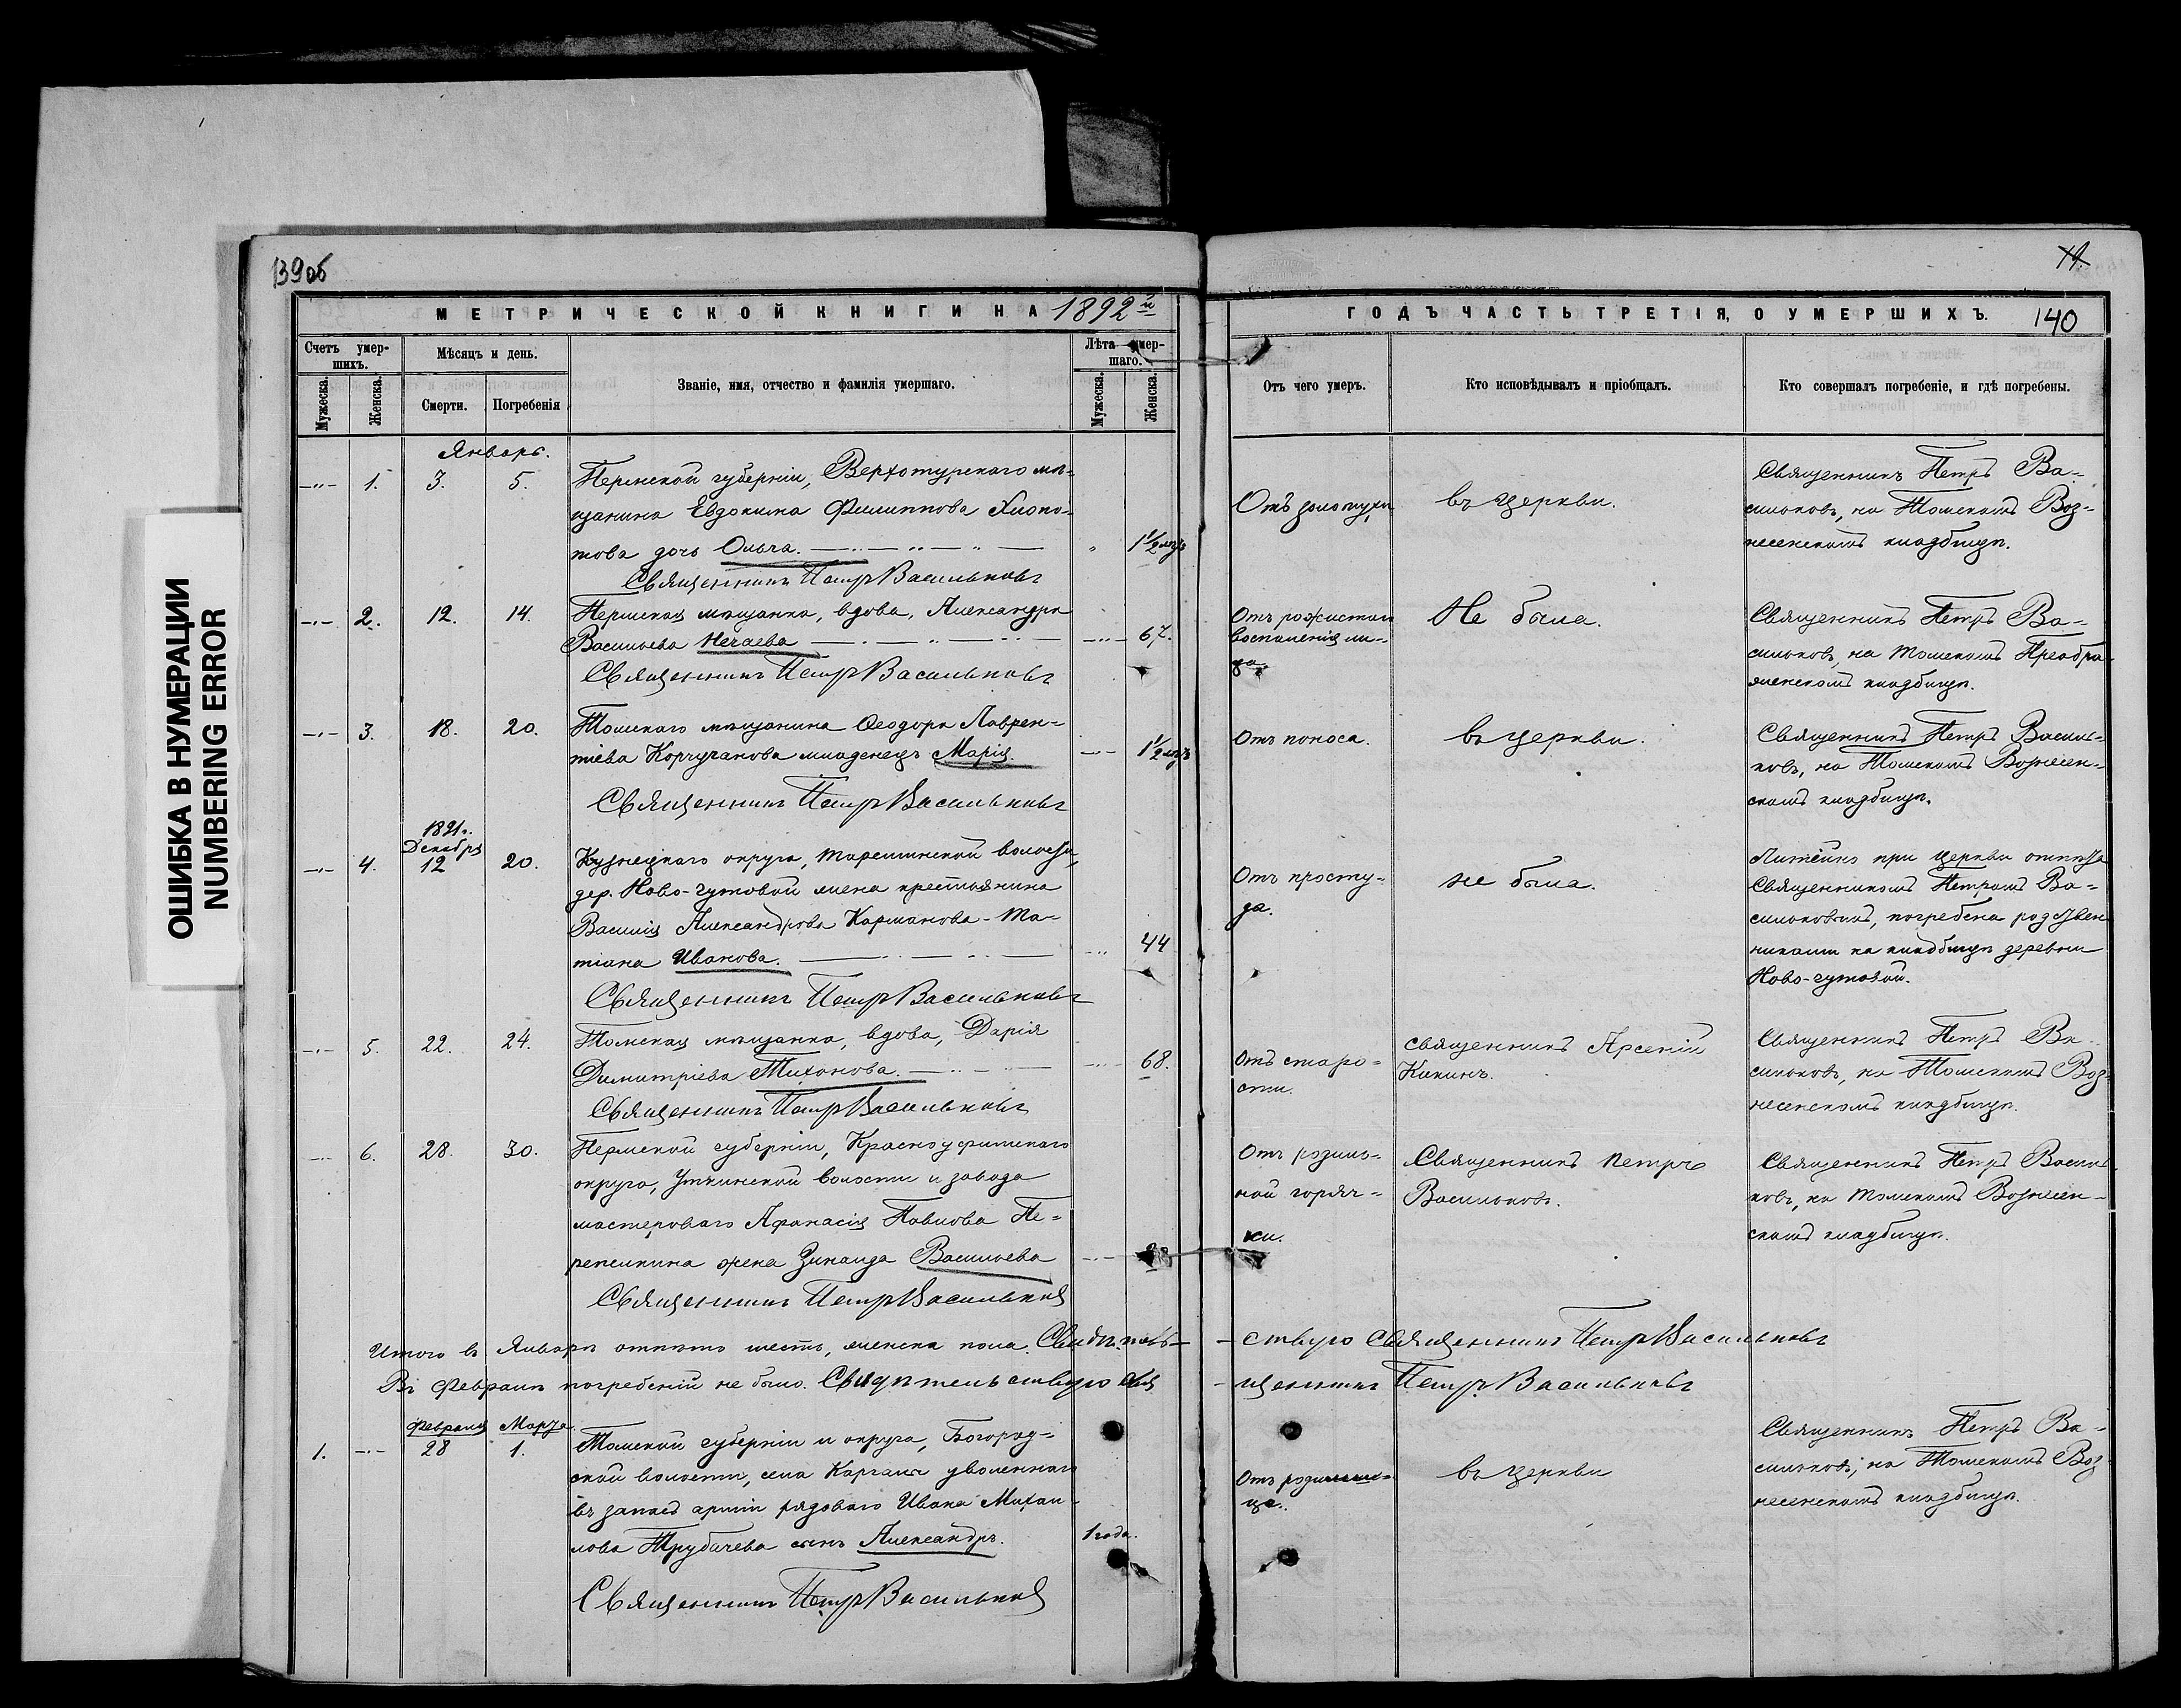 139об
19.
МЕТРИЧЕСКОЙ КНИГИ НА 1892й
ГОДЪ ЧАСТЬ ТРЕТІЯ, О УМЕРШИХЪ.
140
Счетъ умер-
шихъ.
Мужеска.
Женска.
Мѣсяцъ и день.
Смерти.
Погребенія
Званіе, имя, отчество и фамилія умершаго.
Лѣта умер-
шаго.
Мужеска.
Женска.
Отъ чего умеръ.
Кто исповѣдывалъ и пріобщалъ.
Кто совершалъ погребеніе, и гдѣ погребены.
ОШИБКА В НУМЕРАЦИИ
NUMBERING ERROR
Январь.
1.
3.
5.
Пермской губерніи, Верхотурскаго мѣ-
щанина Евдокима Филиппова Хлопо-
това дочь Ольга.
1 1/2 г.
Священникъ Петръ Васильковъ
Отъ золотухи
въ церкви.
Священникъ Петръ Ва-
сильковъ, на Томскомъ Воз-
несенскомъ кладбищѣ.
2.
12.
14.
Пермская мѣщанка, вдова, Александра
Васильева Нечаева
67.
Священникъ Петръ Васильковъ
Отъ рожистаго
воспаленія ли-
ца.
Не была.
Священникъ Петръ Ва-
сильковъ, на Томскомъ Преобра-
женскомъ кладбищѣ.
3.
18.
20.
Томскаго мѣщанина Ѳеодора Лаврен-
тіева Корчуганова младенецъ Марія.
1 1/2
Священникъ Петръ Васильковъ
Отъ поноса.
въ церкви.
Священникъ Петръ Василь-
ковъ, на Томскомъ Вознесен-
скомъ кладбищѣ.
1891г.
Декабря
4.
12
20.
Кузнецкаго округа, Тарсминской волости,
дер. Ново-чутовой жена крестьянина
Василія Александрова Карманова - Та-
тіана Иванова.
44
Священникъ Петръ Васильковъ
Отъ просту-
ды.
не была.
Литейно при церкви отпѣта
Священникомъ Петромъ Ва-
сильковымъ, погребена родствен-
никами на кладбищѣ деревни
Ново-чутовой.
5.
22.
24.
Томская мѣщанка, вдова, Дарія
Димитріева Тихонова.
68.
Священникъ Петръ Васильковъ
Отъ старо-
сти.
священникъ Арсеній
Кикинъ.
Священникъ Петръ Ва-
сильковъ, на Томскомъ Воз-
несенскомъ кладбищѣ.
6.
28.
30.
Пермской губерніи, Красноуфимскаго
округа, Уткинской волости и завода
мастероваго Афанасія Павлова Пе-
репелкина жена Зинаида Васильева
Священникъ Петръ Васильковъ
Отъ родиль-
ной горяч-
ки.
Священникъ Петръ
Васильковъ.
Священникъ Петръ Василь-
ковъ, на Томскомъ Вознесен-
скомъ кладбищѣ.
Итого въ Январѣ отпѣто шесть, женска пола. Свидѣтель-ствую Священникъ Петръ Васильковъ
Въ Февралѣ погребеній не было. Свидѣтельствую Свя-щенникъ Петръ Васильковъ
Февраля
Марта
1.
28
1.
Томской губерніи и округа, Богород-
ской волости, села Каргалъ уволеннаго
въ запасъ арміи рядоваго Ивана Михаи-
лова Трубачева сынъ Александръ.
1 года.
Священникъ Петръ Васильковъ
Отъ родимч-
ца.
въ церкви
Священникъ Петръ Ва-
сильковъ, на Томскомъ Воз-
несенскомъ кладбищѣ.